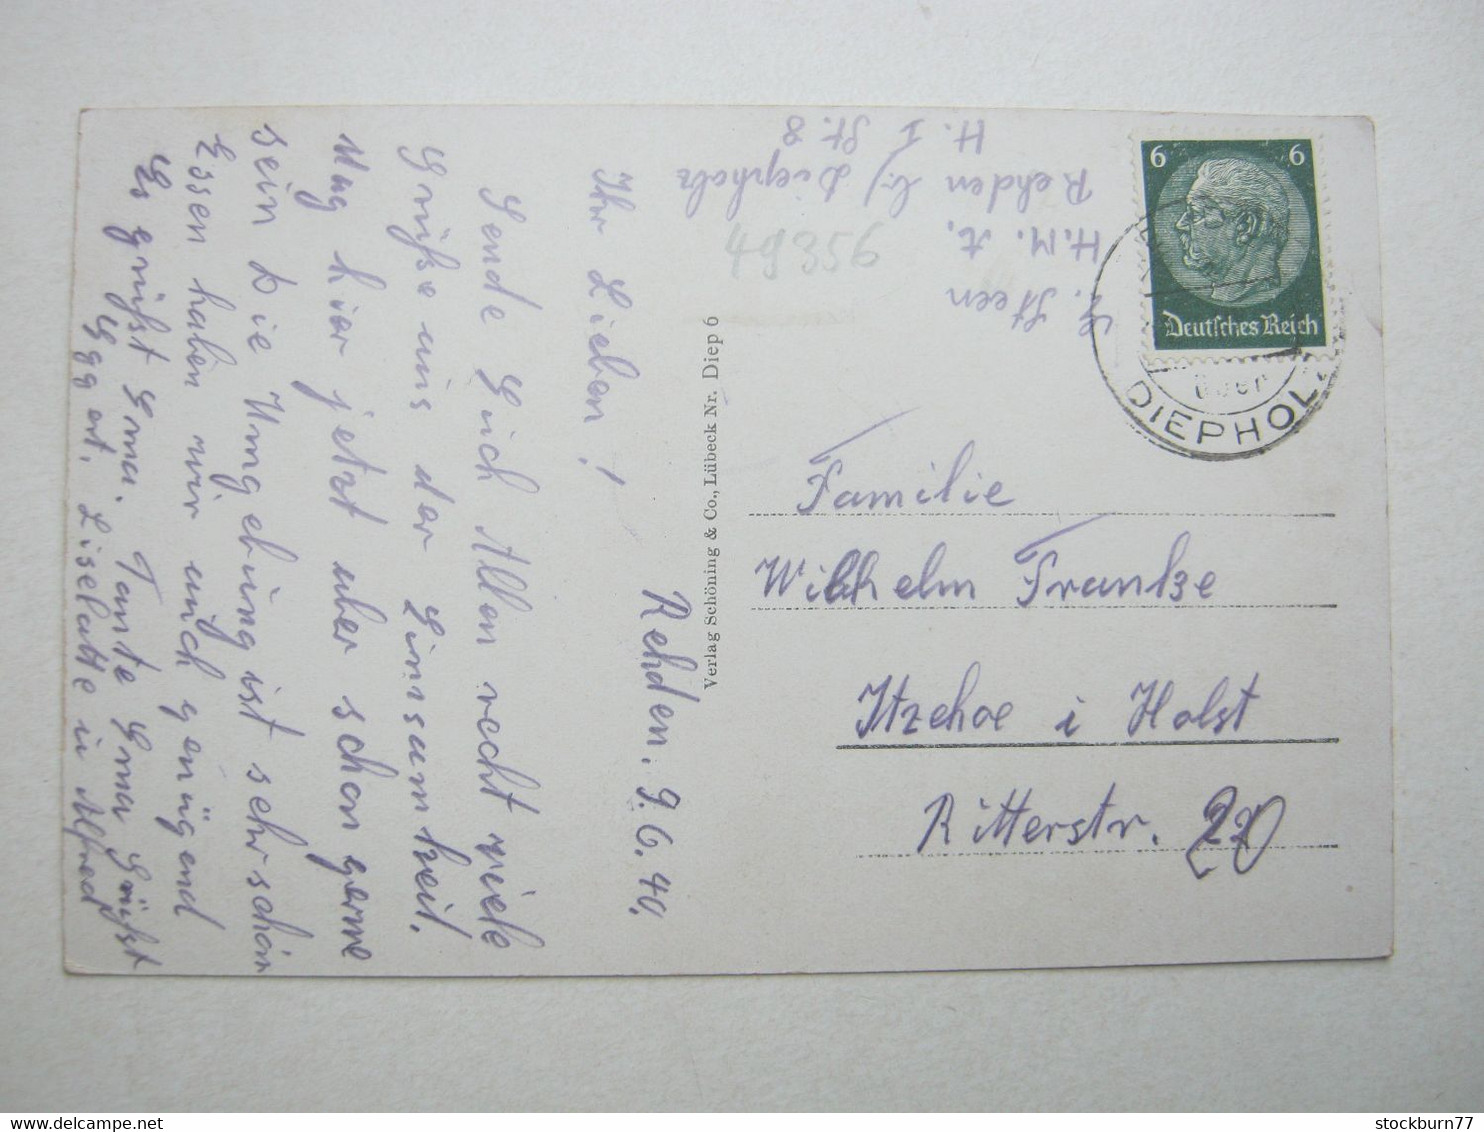 Rehden. 9.6.40.
Ihr Lieben!
Sende Euch Allen recht viele
Grüße aus der Einsamkeit.
Mag hier jetzt aber schon gerne
sein Die Umgebung ist sehr schön
Essen haben wir auch genügend
Es grüßt Erna. Tante Erna Grüßt
Eggert, Liselotte u Alfred
Verlag Schöning & Co., Lübeck Nr. Diep 6
Steen
H. M. A.
Rehden b/ Diepholz
H. I St. 8
49356
6 6
Deutsches Reich
über
DIEPHOLZ
Familie
Wilhelm Franke
Itzehoe i Holst
Ritterstr.
stockburn77